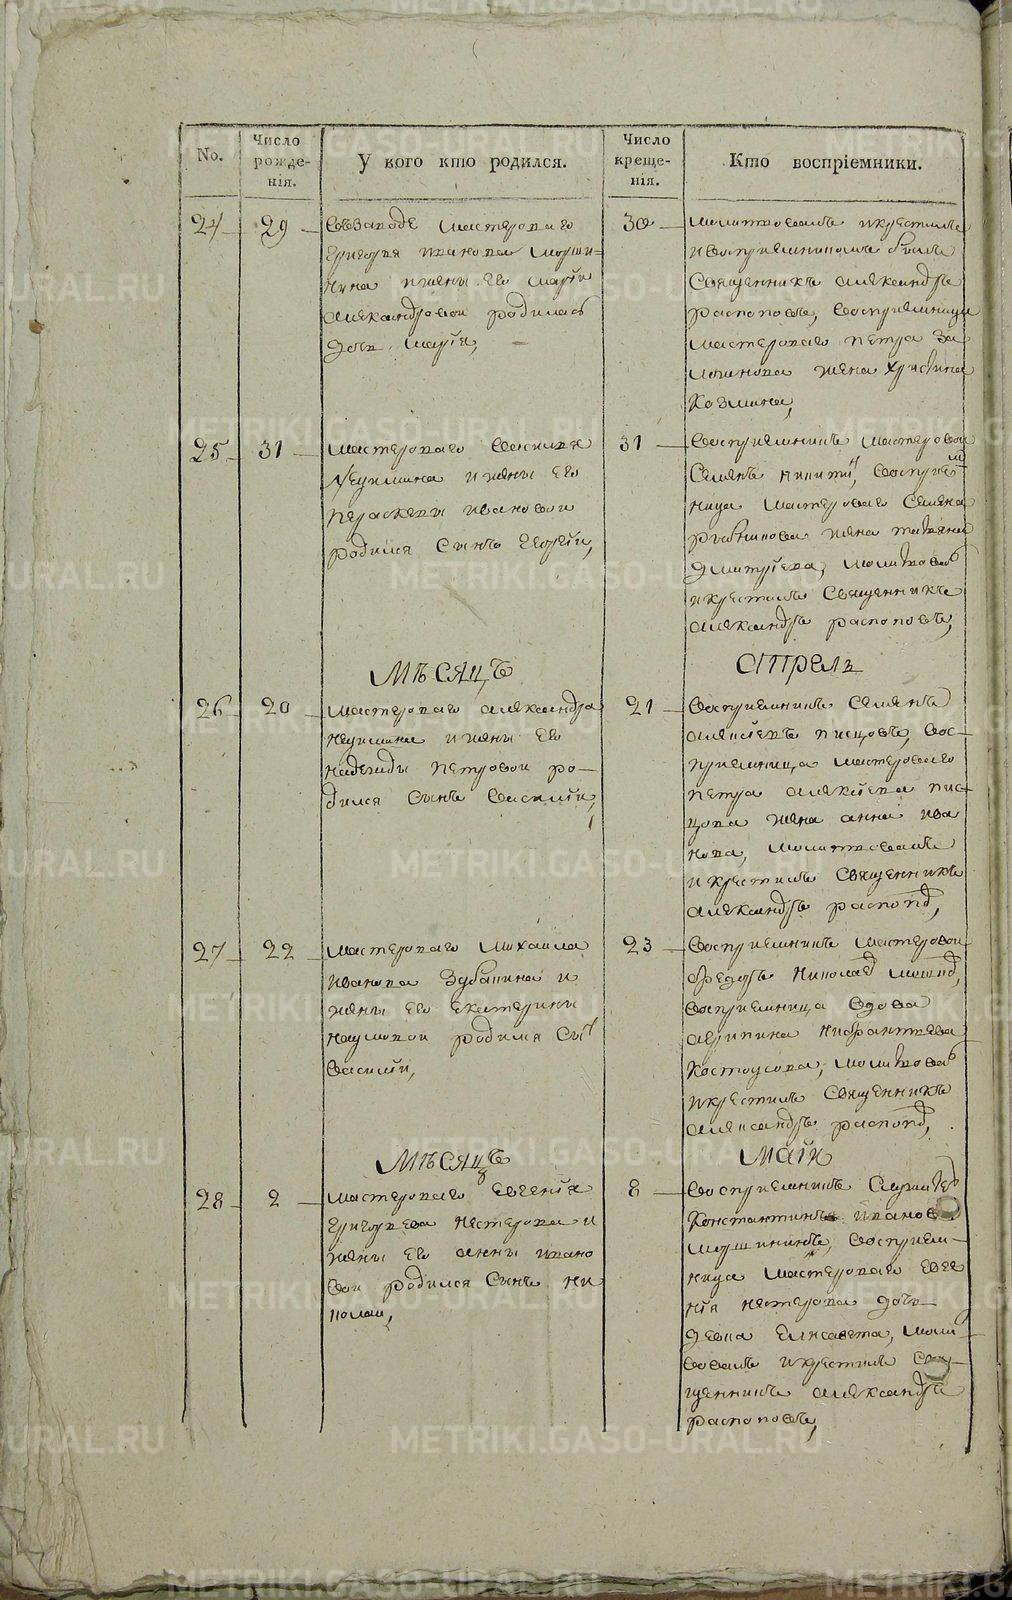 No.
Число рожде-нія.
У кого кто родился.
Число креще-нія.
Кто воспріемники.
24
29
въ заводѣ мастероваго
Григорья Иванова
нина и жены его Марьи
Александровои родилась
дочь Марія,
30
молитвовалъ и крестилъ
и воспріемникомъ былъ
Священникъ Александръ
Распоповъ, воспріемница
мастероваго Петра
жена Христина
Козмина,
25
31
мастероваго
и жены его
Параскевы Ивановои
родился сынъ Георгіи,
31
воспріемникъ мастеровои
Семенъ воспріем
ница мастероваго Семена
жена Татьяна
Дмитріева, молитвовалъ
и крестилъ Священникъ
Александръ Распоповъ,
Мѣсяцъ
Апрель
26
20
мастероваго Александра
и жены его
Надежды Петровои ро-
дился сынъ Василіи,
21
воспріемникъ Семенъ
Алексіевъ Писцовъ, вос-
пріемница мастероваго
Петра Алексіева Пис-
цова жена Анна Ива
нова, молитвовалъ
и крестилъ Священникъ
Александръ Распопов,
27
22
мастероваго Михаила
Иванова Зубанина и
жены его Екатерины
Наумовои родился сын
Василіи,
23
воспріемникъ мастеровои
воспріемница вдова
Агрипина
молитвовал
и крестилъ Священникъ
Александръ Распопов,
Мѣсяцъ
Маіи
28
2
мастероваго Евгенія
Григорьева Нестерова и
жены его Анны Ивано
вои родился сынъ Ни
колаи,
8
воспріемникъ
Константинъ Иванов
воспріем-
ница мастероваго Евге
нія Нестерова дочь
девка Елисавета, моли
вовалъ и крестилъ Свя-
щенникъ Александръ
Распоповъ,
METRIKI.GASO-URAL.RU